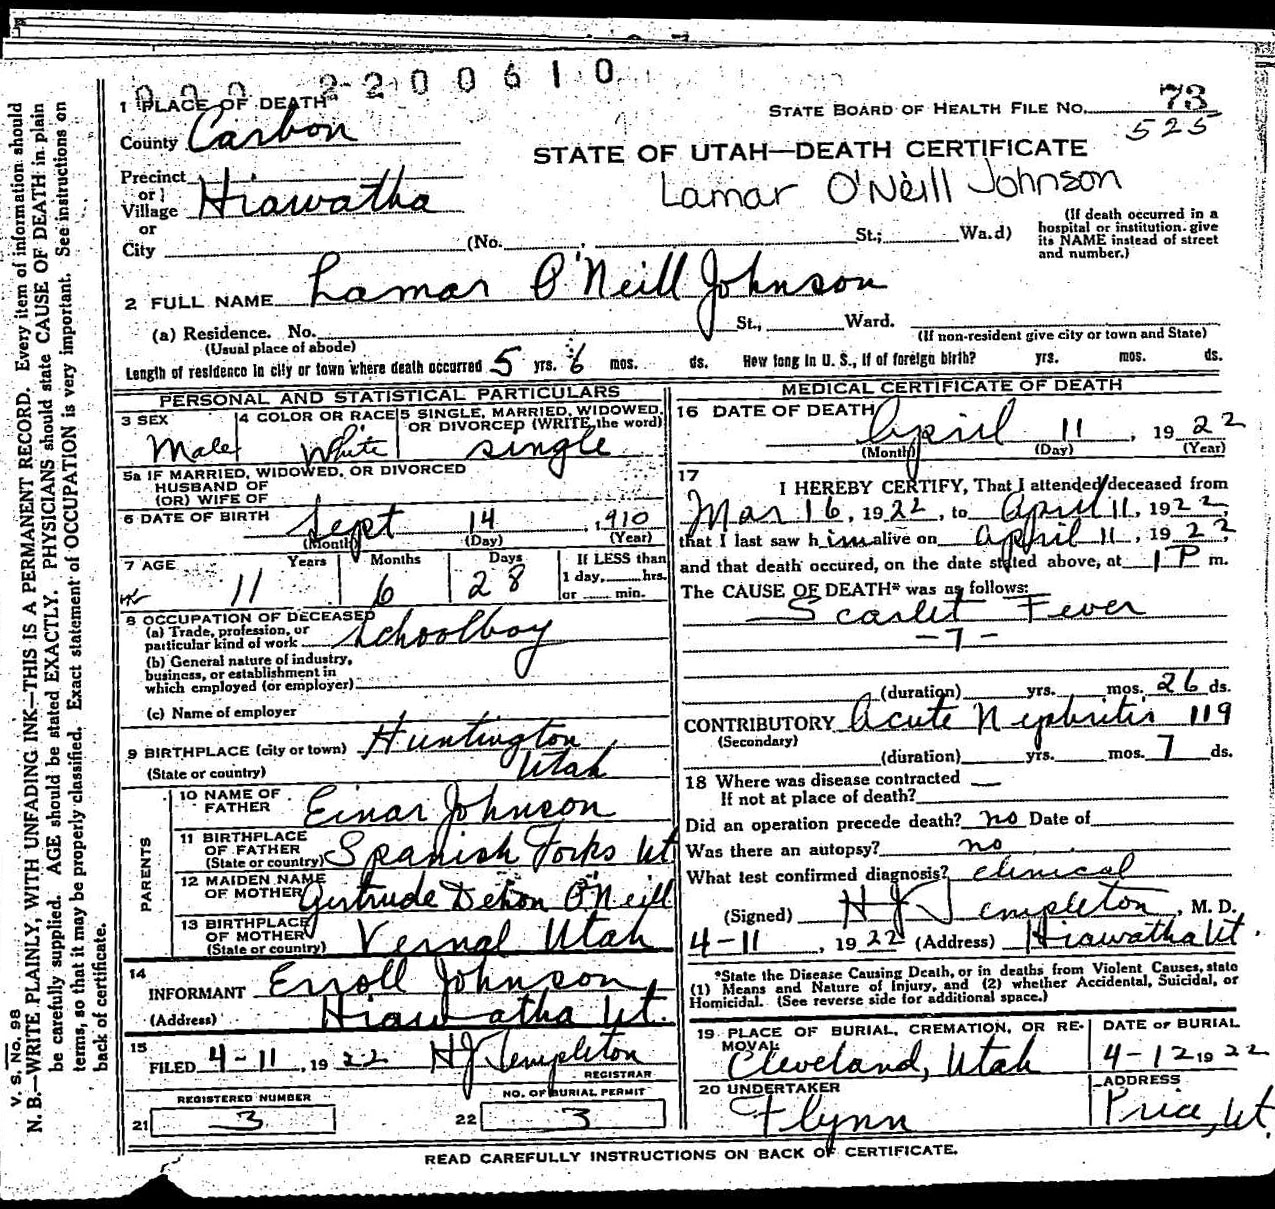 000 2200610
1 PLACE OF DEATH
STATE BOARD OF HEALTH FILE NO. 73
525
County Carbon
STATE OF UTAH—DEATH CERTIFICATE
Lamar O'Neill Johnson
Precinct
or
Village Hiawatha
or
City (No. , St.; Wa.d)
(If death occurred in a hospital or institution. give its NAME instead of street and number.)
2 FULL NAME Lamar O'Neill Johnson
(a) Residence. No. St., Ward.
(Usual place of abode)
(If non-resident give city or town and State)
Length of residence in city or town where death occurred 5 yrs. 6 mos. ds. How long in U. S., if of foreign birth? yrs. mos. ds.
PERSONAL AND STATISTICAL PARTICULARS
3 SEX Male
4 COLOR OR RACE White
5 SINGLE, MARRIED, WIDOWED, OR DIVORCED (WRITE the word) single
5a IF MARRIED, WIDOWED, OR DIVORCED
HUSBAND OF
(OR) WIFE OF
6 DATE OF BIRTH Sept 14, 1910
(Month) (Day) (Year)
7 AGE Years Months Days If LESS than
11 6 28 1 day, hrs.
or min.
8 OCCUPATION OF DECEASED
(a) Trade, profession, or
particular kind of work Schoolboy
(b) General nature of industry,
business, or establishment in
which employed (or employer)
(c) Name of employer
9 BIRTHPLACE (city or town) Huntington
(State or country) Utah
PARENTS
10 NAME OF
FATHER Einar Johnson
11 BIRTHPLACE
OF FATHER
(State or country) Spanish Forks Ut
12 MAIDEN NAME
OF MOTHER Gertrude O'Neill
13 BIRTHPLACE
OF MOTHER
(State or country) Vernal Utah
14
INFORMANT Erroll Johnson
(Address) Hiawatha Ut.
15
FILED 4-11, 1922 HJ Templeton
REGISTRAR
REGISTERED NUMBER
21 3
NO. OF BURIAL PERMIT
22 3
MEDICAL CERTIFICATE OF DEATH
16 DATE OF DEATH
April 11, 1922
(Month) (Day) (Year)
17
I HEREBY CERTIFY, That I attended deceased from
Mar 16, 1922, to April 11, 1922,
that I last saw him alive on April 11, 1922,
and that death occured, on the date stated above, at 1 P m.
The CAUSE OF DEATH* was as follows:
Scarlet Fever
-7-
(duration) yrs. mos. 26 ds.
CONTRIBUTORY Acute Nephritis 119
(Secondary)
(duration) yrs. mos. 7 ds.
18 Where was disease contracted —
If not at place of death?
Did an operation precede death? no Date of
Was there an autopsy? no
What test confirmed diagnosis? clinical
(Signed) HJ Templeton, M. D.
4-11, 1922 (Address) Hiawatha Ut.
*State the Disease Causing Death, or in deaths from Violent Causes, state
(1) Means and Nature of Injury, and (2) whether Accidental, Suicidal, or
Homicidal. (See reverse side for additional space.)
19 PLACE OF BURIAL, CREMATION, OR RE-
MOVAL
Cleveland, Utah
DATE OF BURIAL
4-12 1922
20 UNDERTAKER
Flynn
ADDRESS
Price, Ut.
READ CAREFULLY INSTRUCTIONS ON BACK OF CERTIFICATE.
V. S. No. 98
N. B.—WRITE PLAINLY, WITH UNFADING INK—THIS IS A PERMANENT RECORD. Every item of information should
be carefully supplied. AGE should be stated EXACTLY. PHYSICIANS should state CAUSE OF DEATH in plain
terms, so that it may be properly classified. Exact statement of OCCUPATION is very important. See instructions on
back of certificate.